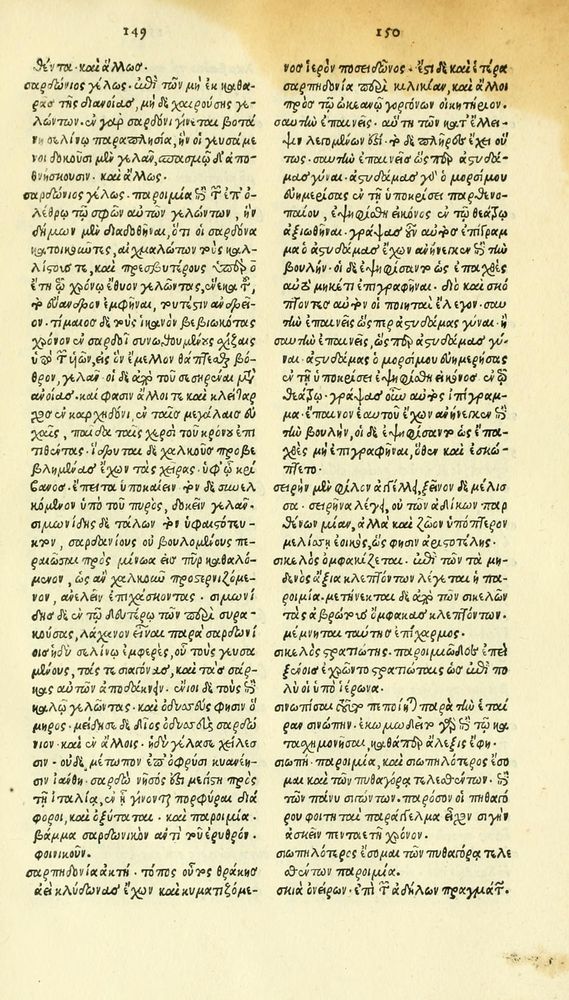 149
θέντα· καὶ ἄλλως.
σαρδώνιος γέλως. ἐπὶ τῶν μὴ ἐκ καθα-
ρᾶς τῆς διανοίας, μὴ δὲ χαιρούσης γε-
λώντων. ἐν γὰρ σαρδόνι γίνεται βοτά
νη σελίνω παραπλησία, ἣν οἱ γευσάμε
νοι δοκοῦσι μὲν γελᾶν, σπασμῶ δὲ ἀπο-
θνήσκουσιν. καὶ ἄλλως.
σαρδώνιος γέλως. παροιμία ἐπὶ τῶν ἐπ' ὀ-
λέθρω τῶ σφῶν αὐτῶν γελώντων, ἣν
δήμων μὲν διαδοθῆναι, ὅτι οἱ σαρδόνα
κατοικοῦντες, αἰχμαλώτων τοὺς καλ-
λίστους τε, καὶ πρεσβυτέρους ὑπὲρ ο
ἔτη τῶ χρόνω ἔθυον γελῶντας, ἕνεκα τοῦ,
τὸ εὔανδρον ἐμφῆναι, τουτέστιν ἀνδρεῖ-
ον. τίμαιος δὲ τοὺς ἱκανὸν βεβιωκότας
χρόνον ἐν σαρδοῖ συνωθουμένους σχίζαις
ὑπὸ τῶν υἱῶν, εἰς ὃν ἔμελλον θάπτεσθαι βό-
θρον, γελᾶν. οἱ δὲ ἀπὸ τοῦ σεσηρέναι μετὰ
ἀνοίας. καί φασιν ἄλλοι τε καὶ κλείταρ
χος ἐν καρχηδόνι, ἐν ταῖς μεγάλαις εὐ
χαῖς, παῖδα ταῖς χερσὶ τοῦ κρόνου ἐπι
τιθέντας. ἵδρυται δὲ χαλκοῦς προβε
βλημένας ἔχων τὰς χεῖρας. ὑφ' ᾧ κρί
βανος. ἔπειτα ὑποκαίειν. τὸν δὲ συνελ
κόμενον ὑπὸ τοῦ πυρὸς, δοκεῖν γελᾶν.
σιμωνίδης δὲ τάλων τὸν ἡφαιστότευ-
κτον, σαρδωνίους οὐ βουλομένους πε-
ραιῶσαι πρὸς μίνωα εἰς πῦρ καθαλό-
μενον, ὡς ἂν χαλκοῦν προστερνιζόμε-
νον, ἀνελεῖν ἐπιχάσκοντας. σιμωνί
δης δὲ ἐν τῶ δευτέρω τῶν περὶ συρα-
κούσας, λάχανον εἶναι παρὰ σαρδωνί
οις ἡδὺ σελίνω ἐμφερὲς, οὗ τοὺς γευσα
μένους, τάς τε σιαγόνας, καὶ τὰς σάρ-
κας αὐτῶν ἀποδάκνειν. ἔνιοι δὲ τοὺς ἐπὶ
κακῶ γελῶντας. καὶ ὀδυσσεύς φησιν ὅ
μηρος. μείδησε δὲ δῖος ὀδυσσεὺς σαρδώ
νιον. καὶ ἐν ἄλλοις. ἡ δὲ γέλασε χείλεσ
σιν. οὐδὲ μέτωπον ἐπ' ὀφρύσι κυανέη-
σιν ἰάνθη. σαρδὼ νῆσός ἐστι μεγίστη πρὸς
τῇ ἰταλία, ἐν ᾗ γίνονται πορφύραι διά
φοροι, καὶ ὀξύταται. καὶ παροιμία.
βάμμα σαρδωνικὸν ἀντὶ τοῦ ἐρυθρόν.
φοινικοῦν.
σαρπηδονία ἀκτή. τόπος οὗτος θράκης
ἀεὶ κλύδωνας ἔχων καὶ κυματιζόμε-
150
νος ἱερὸν ποσειδῶνος. ἔστι δὲ καὶ ἑτέρα
σαρπηδονία περὶ κιλικίαν, καὶ ἄλλοι
πρὸς τῶ ὠκεανῶ γοργόνων οἰκητήριον.
σαυτὴν ἐπαινεῖς. αὕτη τῶν κατ' ἔλλει-
ψιν λεγομένων ἐστί. τὸ δὲ πλῆρες ἔχει οὕ
τως. σαυτὴν ἐπαινεῖς ὥσπερ ἀστυδά-
μας γύναι. ἀστυδάμας γὰρ ὁ μορσίμου
εὐημερίσας ἐν τῇ ὑποκρίσει παρθενο-
παίου, ἐψηφίσθη εἰκόνος ἐν τῶ θεάτρω
ἀξιωθῆναι. γράψας οὖν αὐτὸς ἐπίγραμ
μα ὁ ἀστυδάμας ἔχων ἀνήνεικεν ἐπὶ τὴν
βουλήν. οἱ δὲ ἐψηφίσαντο ὡς ἐπαχθὲς
αὐτὸ μηκέτι ἐπιγραφῆναι. διὸ καὶ σκώ
πτοντες αὐτὸν οἱ ποιηταὶ ἔλεγον. σαυ
τὴν ἐπαινεῖς ὥσπερ ἀστυδάμας γύναι. ἢ
σαυτὴν ἐπαινεῖς, ὥσπερ ἀστυδάμας γύ-
ναι. ἀστυδάμας ὁ μορσίμου εὐημερήσας
ἐν τῇ ὑποκρίσει ἐψηφίσθη εἰκόνος ἐν τῶ
θεάτρω. γράψας οὖν αὐτὸς ἐπίγραμ-
μα. ἔπαινον ἑαυτοῦ ἔχων ἀνήνεικεν ἐπὶ
τὴν βουλὴν, οἱ δὲ ἐψηφίσαντο ὡς ἐπα-
χθὲς μὴ ἐπιγραφῆναι, ὅθεν καὶ ἐσκώ-
πτετο.
σειρὴν μὲν φίλον ἀγγέλλει, ξεῖνον δὲ μέλισ
σα. σειρῆνα λέγει, οὐ τῶν ἀδίκων παρ
θένων μίαν, ἀλλὰ καὶ ζῶον ὑπόπτερον
μελίσσῃ ἐοικὸς, ὥς φησιν ἀριστοτέλης.
σικελὸς ὀμφακίζεται. ἐπὶ τῶν τὰ μη-
δενὸς ἄξια κλεπτόντων λέγεται ἡ πα-
ροιμία. μετήνεκται δὲ ἀπὸ τῶν σικελῶν
τὰς ἀβρώτους ὄμφακας κλεπτόντων.
μέμνηται ταύτης ἐπίχαρμος.
σικελὸς στρατιώτης. παροιμιῶδες ἐπεὶ
ξένοις ἐχρῶντο στρατιώταις ὡς ἐπὶ πο
λὺ οἱ ὑπὸ ἱέρωνα.
σινωπίσαι πεποίηται παρὰ τὴν ἑταί
ραν σινώπην. ἐκωμωδεῖτο γὰρ ἐπὶ τῶ κα
τασχημονῆσαι, καθάπερ ἄλεξις ἔφη.
σιωπή. παροιμία, καὶ σιωπηλότερος ἔσο
μαι καὶ τῶν πυθαγόρα τελεσθέντων. ἐπὶ
τῶν πάνυ σιγώντων. παρόσον οἱ πυθαγό
ρου φοιτηταὶ παράγγελμα εἶχον σιγὴν
ἀσκεῖν πενταετῆ χρόνον.
σιωπηλότερος ἔσομαι τῶν πυθαγόρα τελε
σθέντων παροιμία.
σκιὰ ὀνείρων. ἐπὶ τῶν ἀδήλων πραγμάτων.